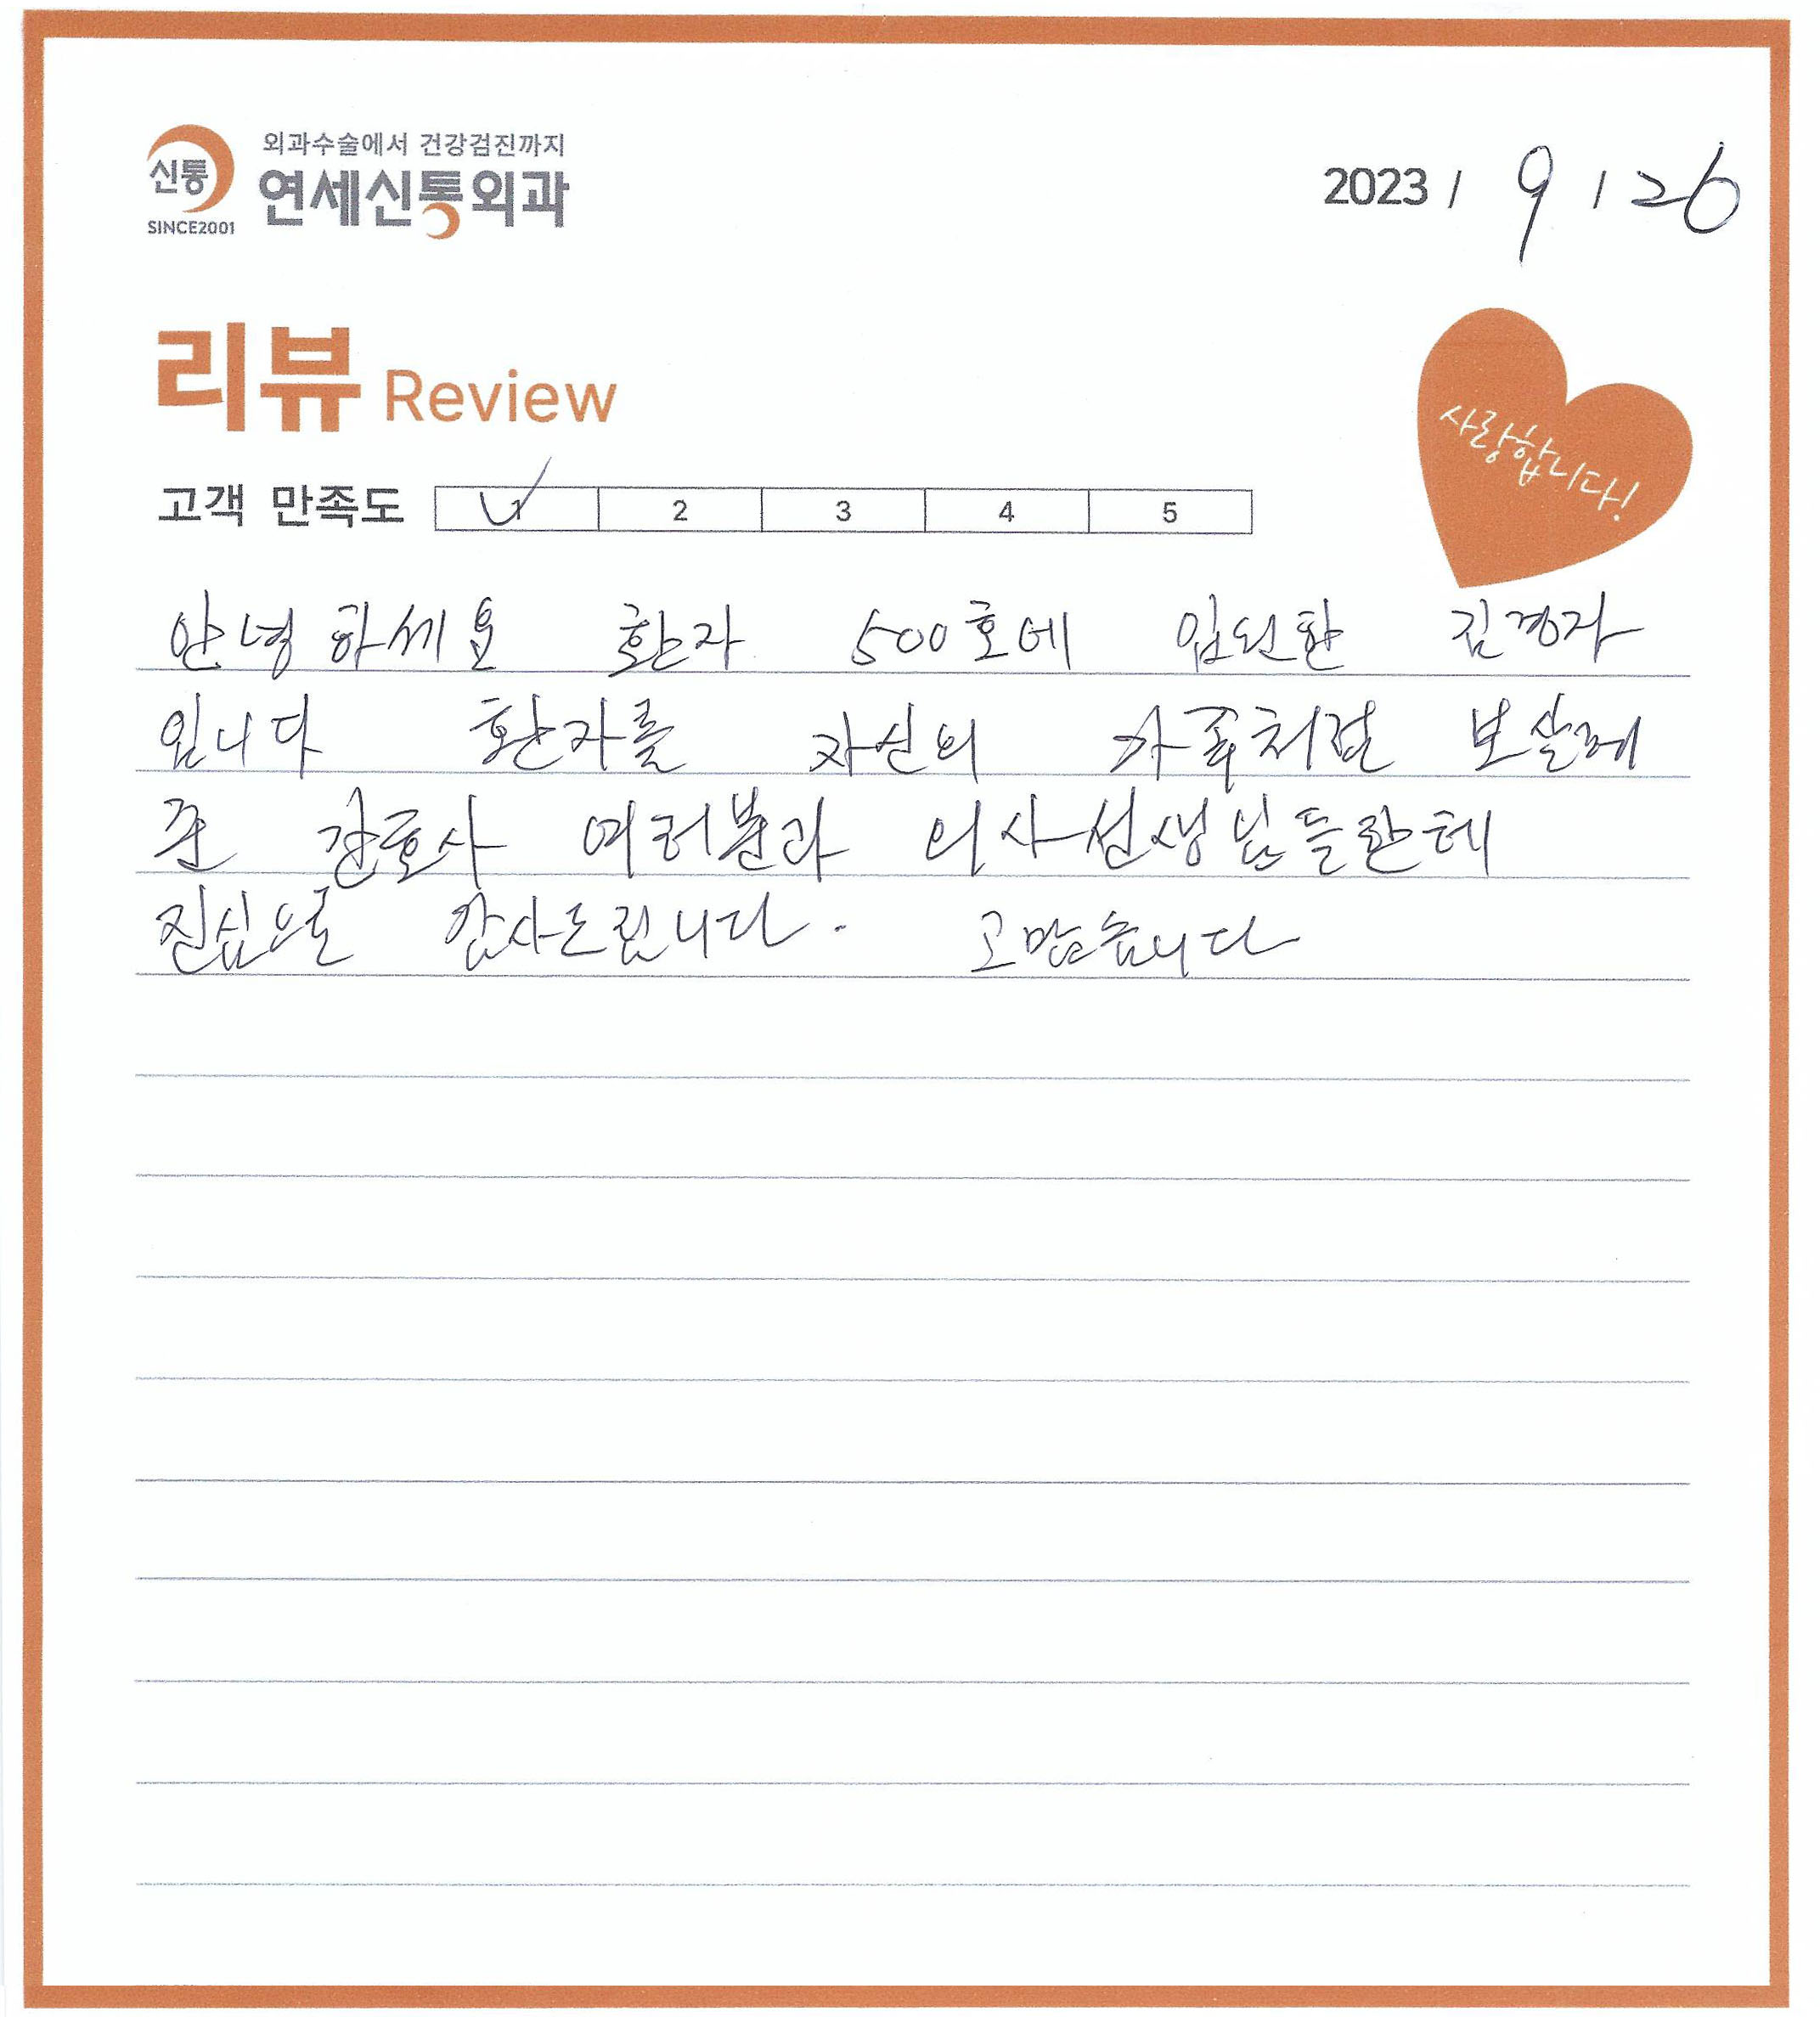 외과수술에서 건강검진까지
신통
연세신통외과
SINCE2001
2023 / 9 / 26
리뷰 Review
사랑합니다!
고객 만족도 1 2 3 4 5
안녕하세요 환자 500호에 입원한 김경자
입니다 환자를 자신의 가족처럼 보살레
준 간호사 여러분과 의사선생님들한테
진심으로 감사드립니다. 고맙습니다